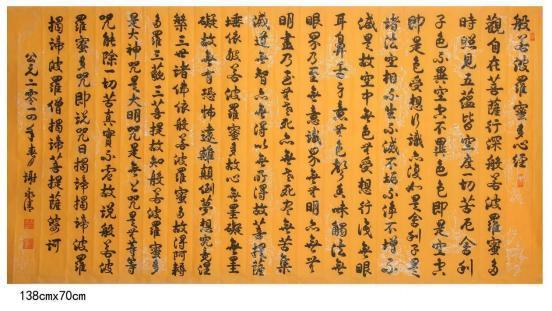 般若波羅蜜多心經
觀自在菩薩行深般若波羅蜜多
時照見五蘊皆空度一切苦厄舍利
子色不異空空不異色色即是空空
即是色受想行識亦復如是舍利子是
諸法空相不生不滅不垢不淨不增不
減是故空中無色無受想行識無眼
耳鼻舌身意無色聲香味觸法無
眼界乃至無意識界無無明亦無無
明盡乃至無老死亦無老死盡無苦集
滅道無智亦無得以無所得故菩提薩
埵依般若波羅蜜多故心無罣礙無罣
礙故無有恐怖遠離顛倒夢想究竟涅
槃三世諸佛依般若波羅蜜多故得阿耨
多羅三藐三菩提故知般若波羅蜜多
是大神咒是大明咒是無上咒是無等等
咒能除一切苦真實不虛故說般若波
羅蜜多咒即說咒曰揭諦揭諦波羅
揭諦波羅僧揭諦菩提薩婆訶
公元二〇一四年春月謝
138cmx70cm